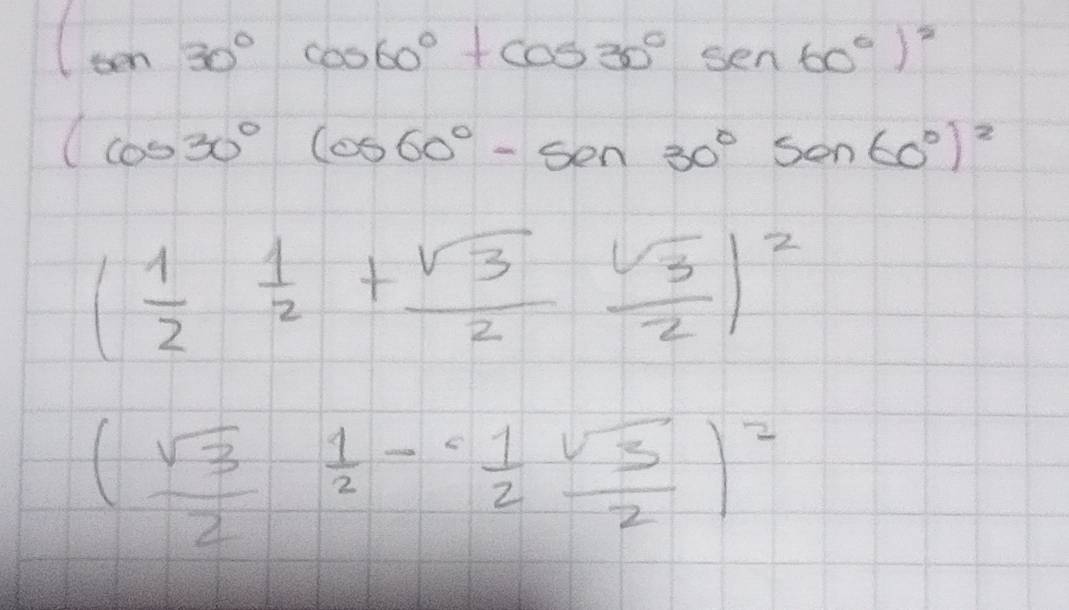 (sen 30° cos60° + cos30° sen 60°)²
(cos30° cos60° - sen 30° sen60°)²
(1/2 1/2 + √3/2 √3/2)²
(√3/2 1/2 - 1/2 √3/2)²